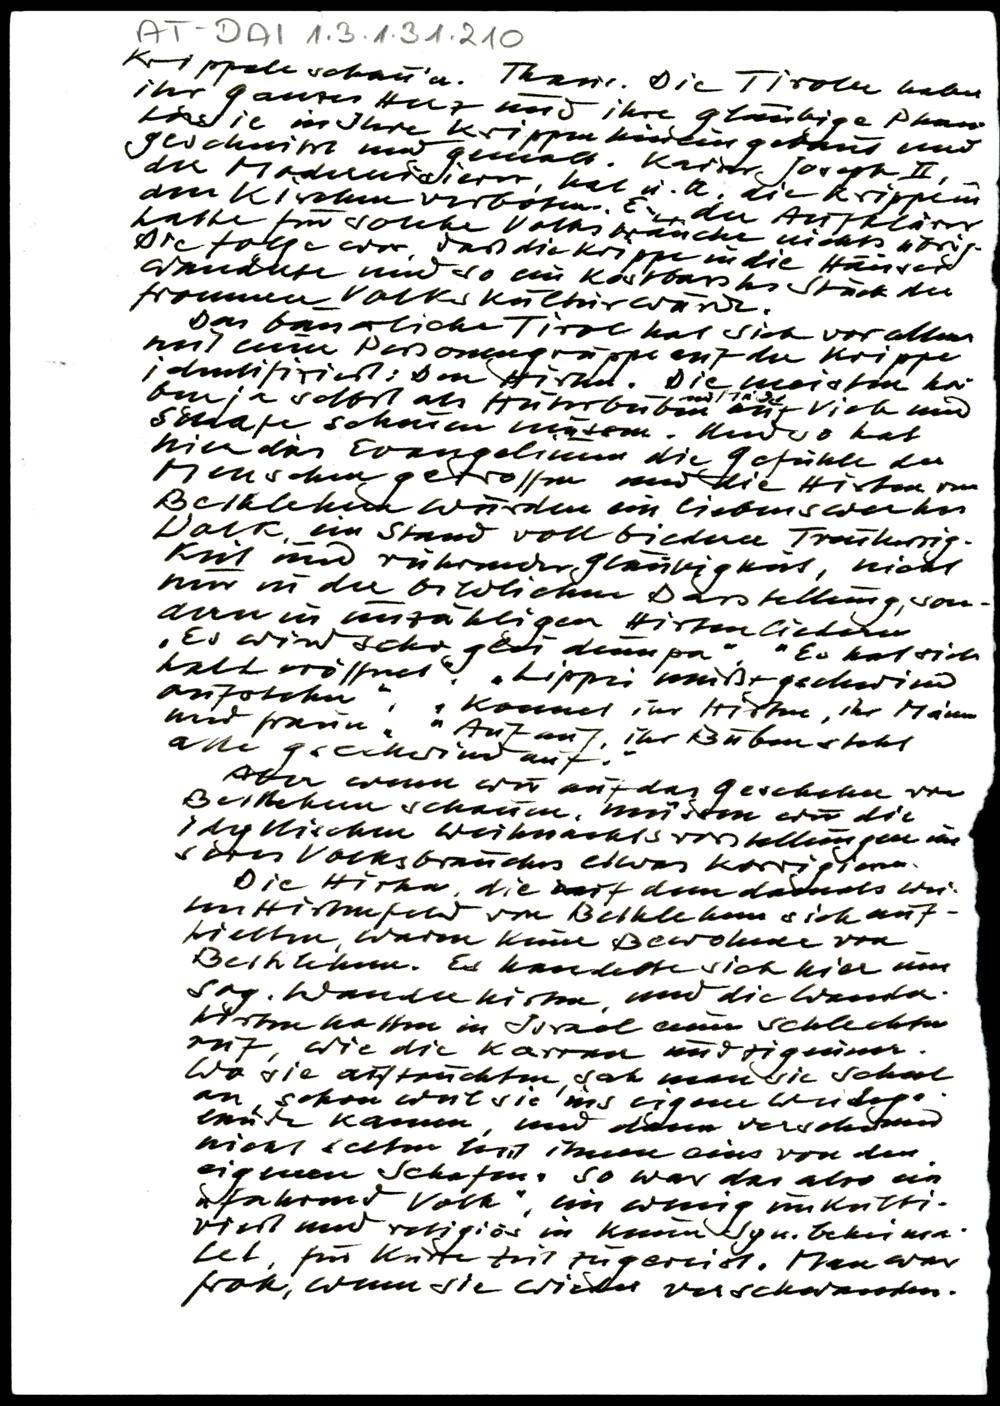 AT-DAI 1.3.1.31.210
Krippele schau'n. Thaur. Die Tiroler haben
ihr ganzes Herz und ihre gläubige Phan-
tasie in ihre Krippen hineingebaut und
geschnitzt und gemalt. Kaiser Joseph II,
der Modernisierer, hat u. a. die Krippe in
den Kirchen verboten. Er, der Aufklärer
hatte für solche Volksbräuche nichts übrig.
Die Folge war, daß die Krippe in die Häuser
wanderte und so ein kostbarstes Stück der
frommen Volkskultur wurde.
Das bäuerliche Tirol hat sich vor allem
mit einer Personengruppe auf der Krippe
identifiziert: Den Hirten. Die meisten ha-
ben ja selbst als Hüterbuben auf Vieh und
Schafe schauen müssen. Und so hat
hier das Evangelium die Gefühle der
Menschen getroffen und die Hirten von
Bethlehem wurden ein liebenswertes
Volk, ein Stand voll biederer Treuherzig-
keit und rührender Gläubigkeit, nicht
nur in der bildlichen Darstellung, son-
dern in unzähligen Hirtenliedern
„Es wird scho glei dumpa", "Es hat sich
halt eröffnet", „Lippei muißt gschwind
aufstehn", „Kommet ihr Hirten, ihr Männer
und Fraun", "Auf auf, ihr Buben steht
alle geschwind auf."
Aber wenn wir auf das Geschehen von
Bethlehem schauen, müssen wir die
idyllischen Weihnachtsvorstellungen un-
seres Volksbrauches etwas korrigieren.
Die Hirten, die auf dem damals wei-
ten Hirtenfeld von Bethlehem sich auf-
hielten, waren keine Bewohner von
Bethlehem. Es handelte sich hier um
sog. Wanderhirten, und die Wander-
hirten hatten in Israel einen schlechten
Ruf, wie die Karrner und Zigeuner.
Wo sie auftauchten, sah man sie scheel
an, schon weil sie ins eigene Weidege-
lände kamen, und dann verschwand
nicht selten mit ihnen eins von den
eigenen Schafen. So war das also ein
„fahrend Volk", ein wenig unkulti-
viert und religiös in keiner Syn. beheima-
tet, für kurze Zeit zugereist. Man war
froh, wenn sie wieder verschwanden.